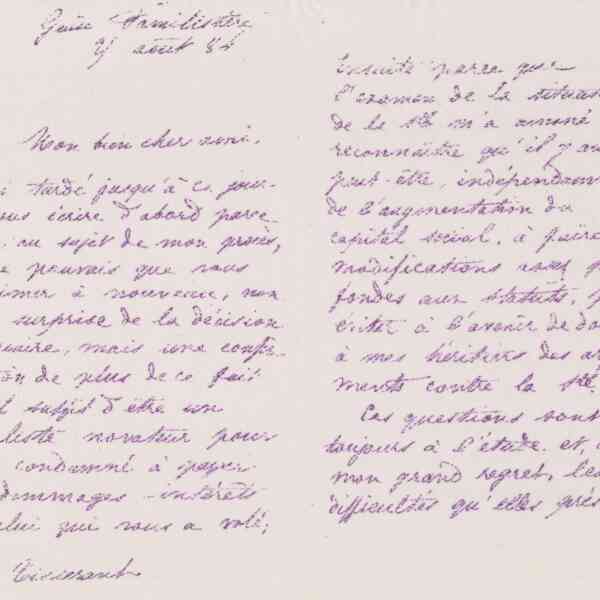 Guise Familistère
août 84
Mon bien cher ami,
tardé jusqu'à ce jour
vous écrire d'abord parce
au sujet de mon procès,
pouvais que vous
primer à nouveau, non
surprise de la décision
ciaire, mais une confir-
on de plus de ce fait
suffit d'être un
liste novateur pour
condamné à payer
dommages-intérêts
celui qui vous a volé;
Tisserant
Ensuite parce que
l'examen de la situa
de la Sté m'a amené
reconnaître qu'il y au
peut-être, indépendam
de l'augmentation du
capital social, à faire
modifications assez p
fondes aux statuts, p
éviter à l'avenir de do
à mes héritiers des ar
ments contre la Sté.
Ces questions sont
toujours à l'étude et,
mon grand regret, les
difficultés qu'elles prés